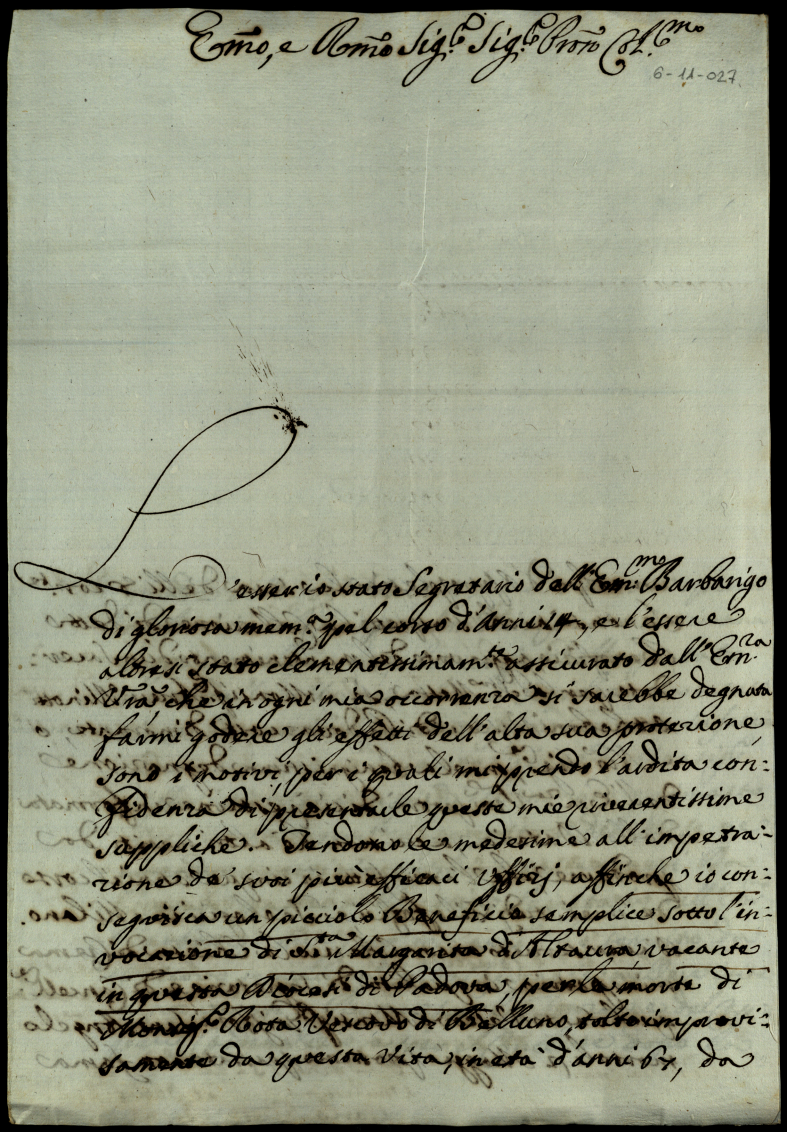 Em̃o, e Rm̃o Sig.r Sig.r Pron̄ Col.mo
6-11-027
L'esser io stato Segretario dell'Em:mo Barbarigo
di gloriosa mem.a pel corso d'Anni 14, e l'essere
altresì stato clementissimam.te assicurato dall'Em.ra
Vr̃a, che in ogni mia occorrenza si sarebbe degnata
farmi godere gli effetti dell'alta sua protezione,
sono i motivi, per i quali mi prendo l'ardita con:
fidenza di presentarle queste mie riverentissime
suppliche. Tendono le medesime all'impetra:
zione de' suoi più efficaci Uffizj, affinche io con:
seguisca un picciolo Beneficio semplice sotto l'in:
vocazione di S.ta Margarita d'Altaura vacante
in questa Diocesi di Padova, per la morte di
Monsig.r Rota Vescovo di Belluno, tolto improvi:
samente da questa vita, in età d'anni 67, da